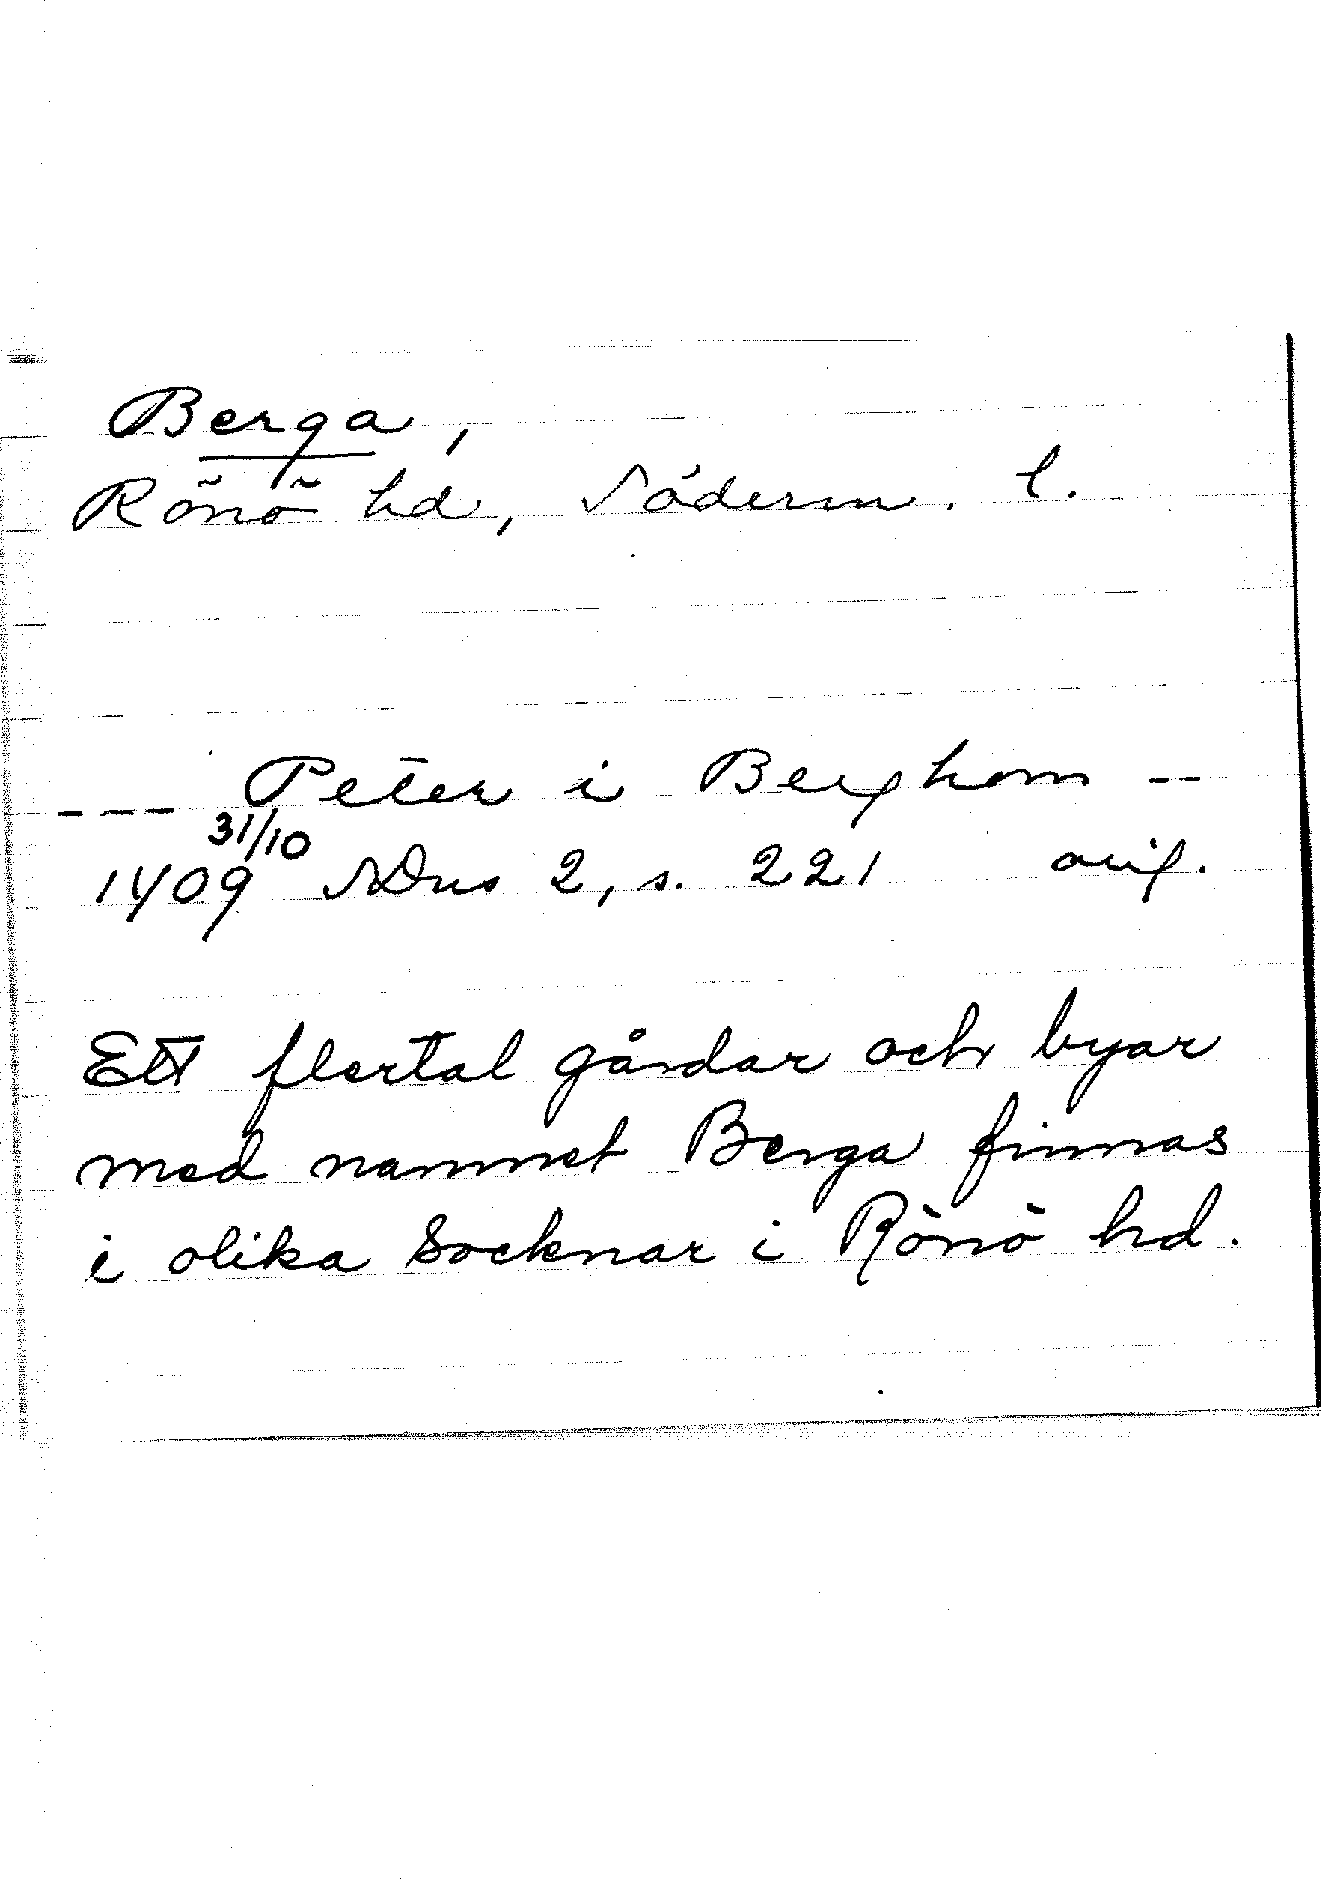 Berga,
Rönö hd, Söderm. l.
--- Peter i Berghom --
1409 31/10 SDns 2, s. 221 orig.
Ett flertal gårdar och byar
med namnet Berga finnas
i olika Socknar i Rönö hd.